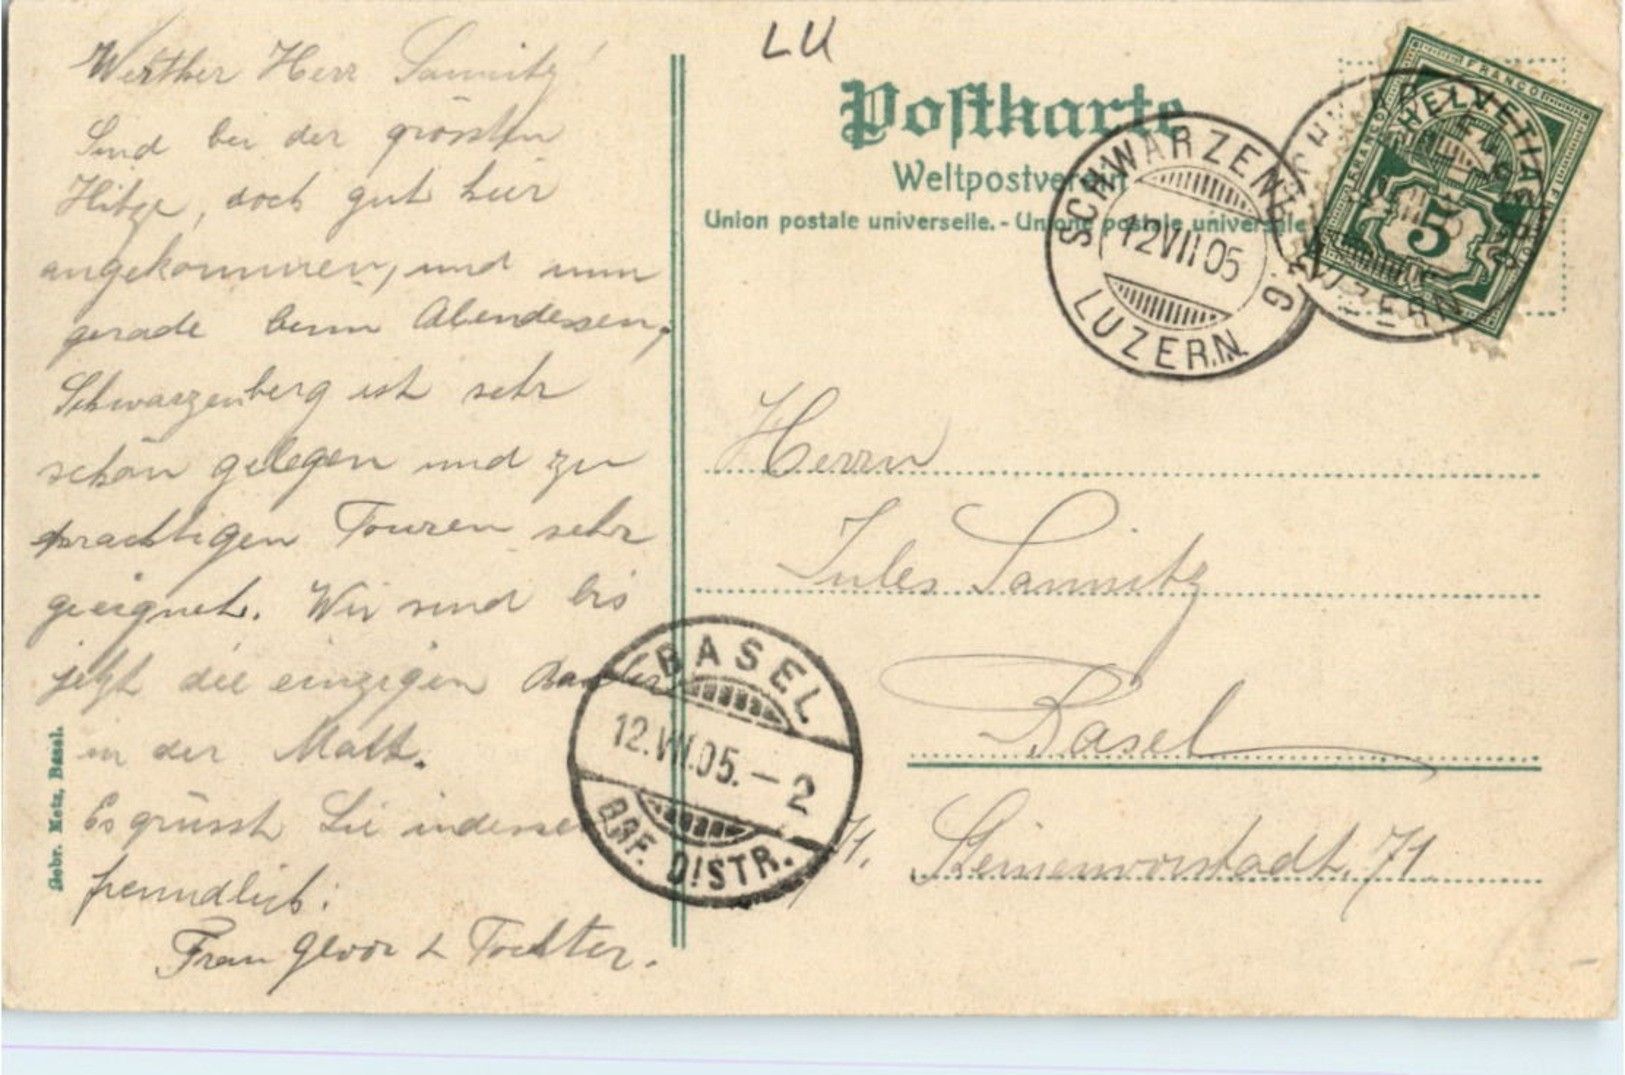 Werther Herr Sannitz!
Sind bei der grössten
Hitze, doch gut hier
angekommen, und nun
gerade beim Abendessen,
Schwarzenberg ist sehr
schön gelegen und zu
prachtigen Touren sehr
geeignet. Wir sind bis
jetzt die einzigen Basler
in der Matt.
Es grüsst Sie indessen
freundlich:
Frau & Tochter.
Gebr. Metz, Basel.
LU
Postkarte
Weltpostverein
Union postale universelle. - Unione postale universale
SCHWARZENBERG
12 VII 05
LUZERN.
FRANCO
HELVETIA
5
LUZERN
Herrn
Jules Sannitz
Basel
71. Steinenvorstadt. 71.
BASEL
12.VII.05. – 2
BRF. DISTR.